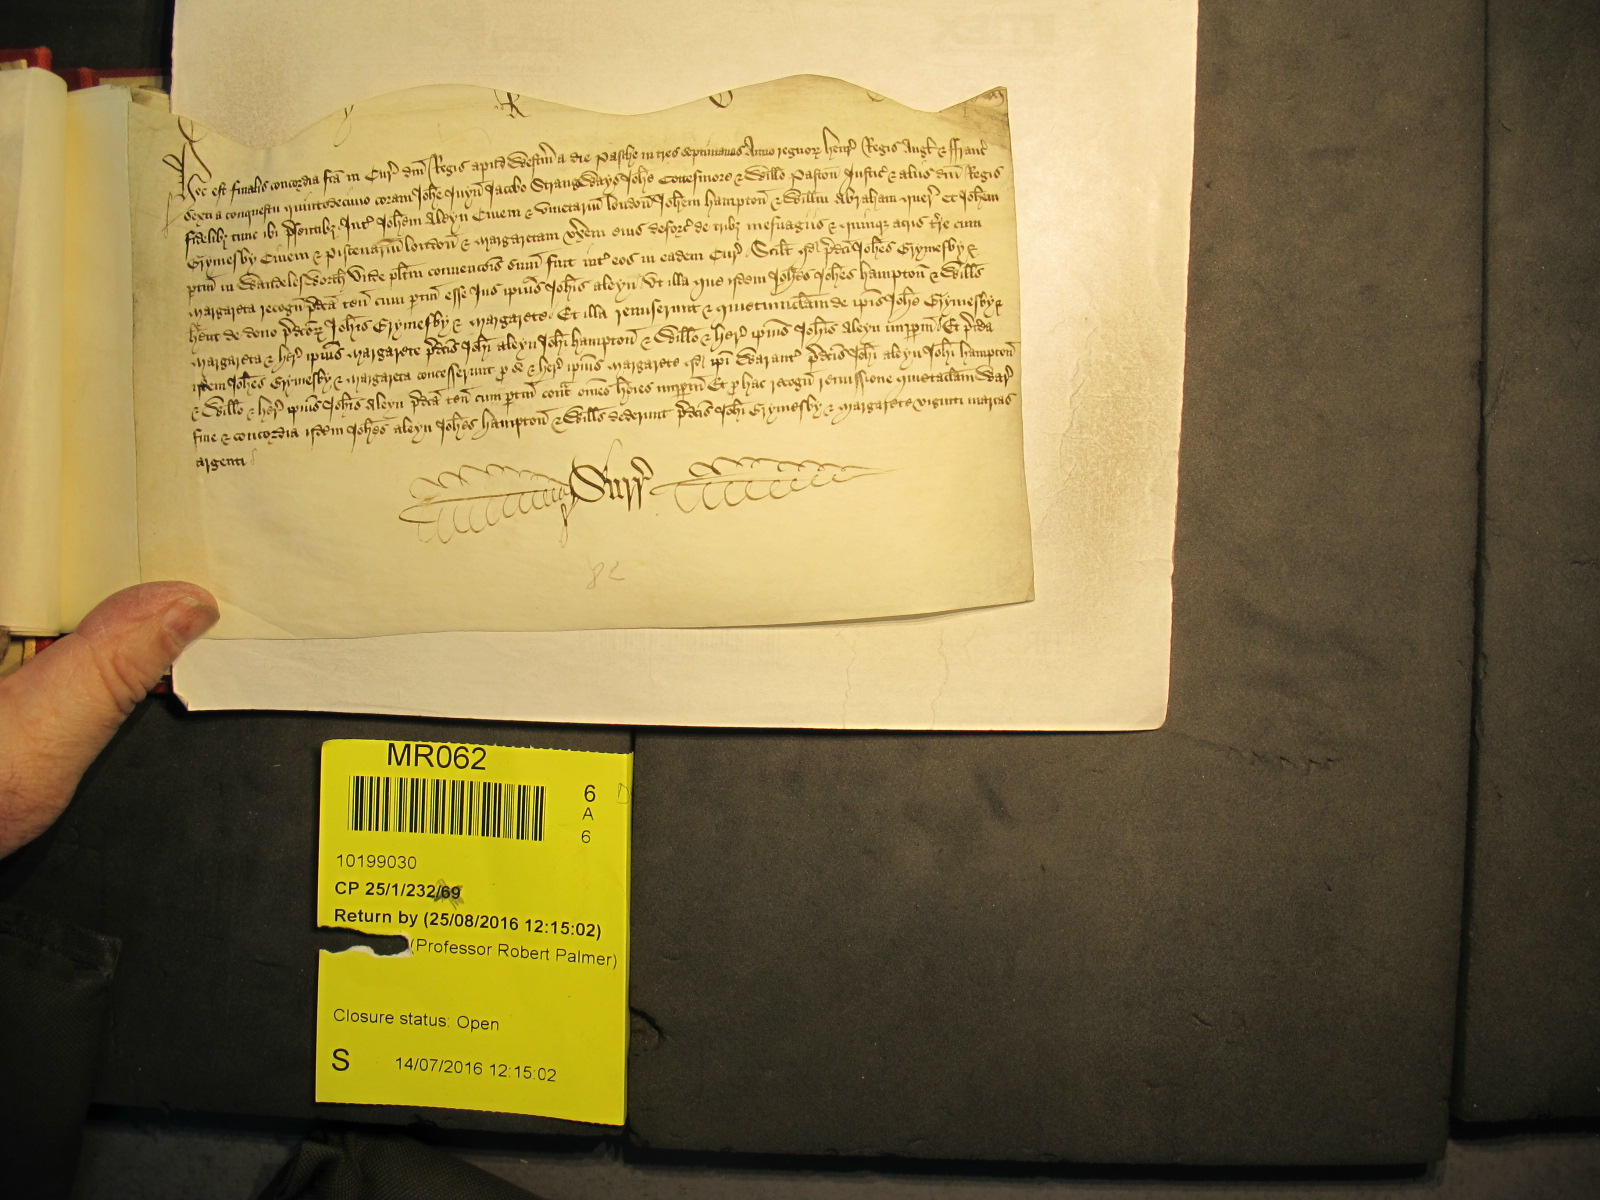 Hoc est finalis concordia fca in Cur dni Regis apud Westm a die Pasche in tres septimanas Anno regnor Henr Regis Angl & Franc
sexti a conquestu quintodecimo coram Johe Juyn Jacobo Strangways Johe Cottesmore & Willo Paston Justic & aliis dni Regis
fidelibz tunc ibi psentibz Int Johem Aleyn Civem & vinetariu london Johem hampton & Willm Abraham quer Et Johem
Grymesby Civem & london & Margaretam vxem eius deforc de tribz mesuagiis & quinque acris tre cum
ptin in Wandelesworth vnde plitm convencois sum fuit int eos in eadem Cur Scilt qd pdci Johes Grymesby &
Margareta recogn pdca ten cum ptin esse Jus ipius Johis aleyn Vt illa que idem Johes Johes hampton & Wills
hent de dono pdcor Johis Grymesby & Margarete Et illa remiserunt & quietumclam de ipis Johe Grymesby &
Margareta & her ipius Margarete pdcis Johi aleyn Johi hampton & Willo & her ipius Johis Aleyn imppm Et pdca
idem Johes Grymesby & Margareta concesserunt p se & her ipius Margarete qd ipi Warant pdcis Johi aleyn Johi hampton
& Willo & her ipius Johis Aleyn pdca ten cum ptin cont omes hoies imppm Et p hac recogn remissione quietaclam War
fine & concordia idem Johes aleyn Johes hampton & Wills dederunt pdcis Johi Grymesby & Margarete viginti marcas
argenti
Surr
82
MR062
6
A
6
10199030
CP 25/1/232/69
Return by (25/08/2016 12:15:02)
(Professor Robert Palmer)
Closure status: Open
S 14/07/2016 12:15:02